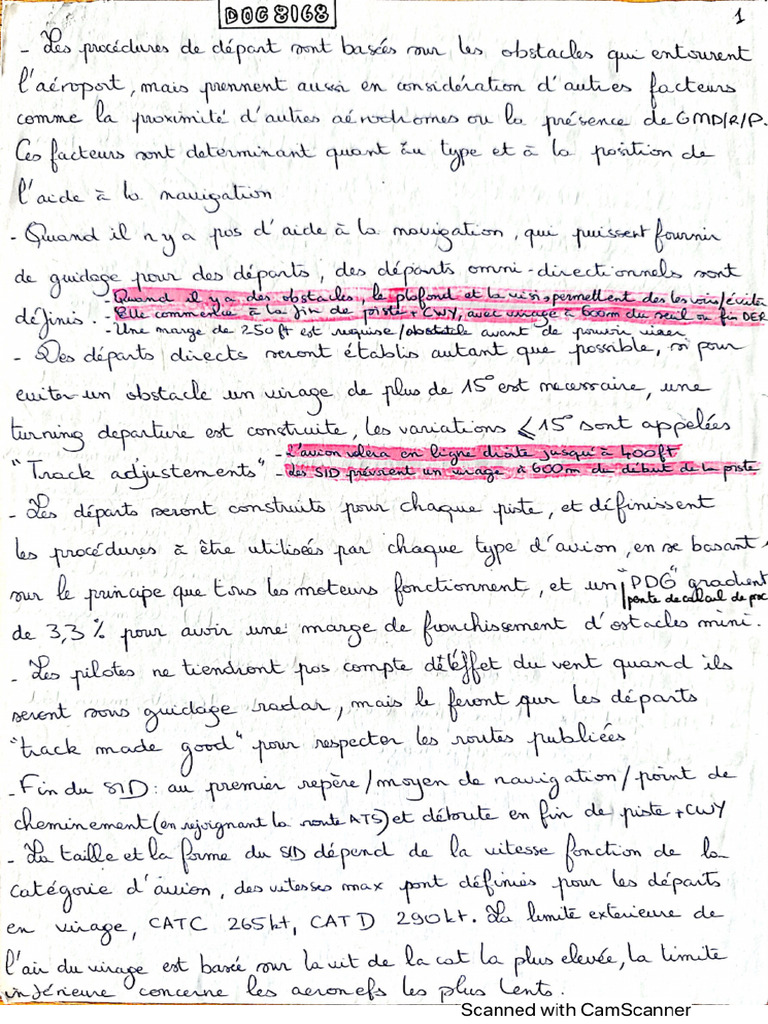 DOC 8168
1
- Les procédures de départ sont basées sur les obstacles qui entourent
l'aéroport, mais prennent aussi en considération d'autres facteurs
comme la proximité d'autres aérodromes ou la présence de GMD/R/P.
Ces facteurs sont determinant quant au type et à la position de
l'aide à la navigation
- Quand il n y a pas d'aide à la navigation, qui puissent fournir
de guidage pour des départs, des départs omni-directionnels sont
- Quand il y a des obstacles, le plafond et la visi permettent des les voir/éviter
définis. - Elle commence à la fin de piste + CWY, avec virage à 600m du seuil ou fin DER
- Une marge de 250ft est requise/obstacle avant de pouvoir virer
- Des départs directs seront établis autant que possible, si pour
eviter un obstacle un virage de plus de 15° est necessaire, une
turning departure est construite, les variations ⩽ 15° sont appelées
- L'avion volera en ligne droite jusqu'à 400ft
"Track adjustements" - Les SID prévoient un virage à 600m du début de la piste
- Les départs seront construits pour chaque piste, et définissent
les procédures à être utilisées par chaque type d'avion, en se basant
sur le principe que tous les moteurs fonctionnent, et un "PDG" gradient
pente de calcul de proc
de 3,3 % pour avoir une marge de franchissement d'ostacles mini.
- Les pilotes ne tiendront pas compte de l'éffet du vent quand ils
seront sous guidage radar, mais le feront sur les départs
"track made good" pour respecter les routes publiées
- Fin du SID : au premier repère/moyen de navigation/point de
cheminement (en rejoignant la route ATS) et débute en fin de piste + CWY
- La taille et la forme du SID dépend de la vitesse fonction de la
catégorie d'avion, des vitesses max sont définies pour les départs
en virage, CATC 265kt, CAT D 290kt. La limite exterieure de
l'air du virage est basé sur la vit de la cat la plus elevée, la limite
inférieure concerne les aeronefs les plus lents.
Scanned with CamScanner